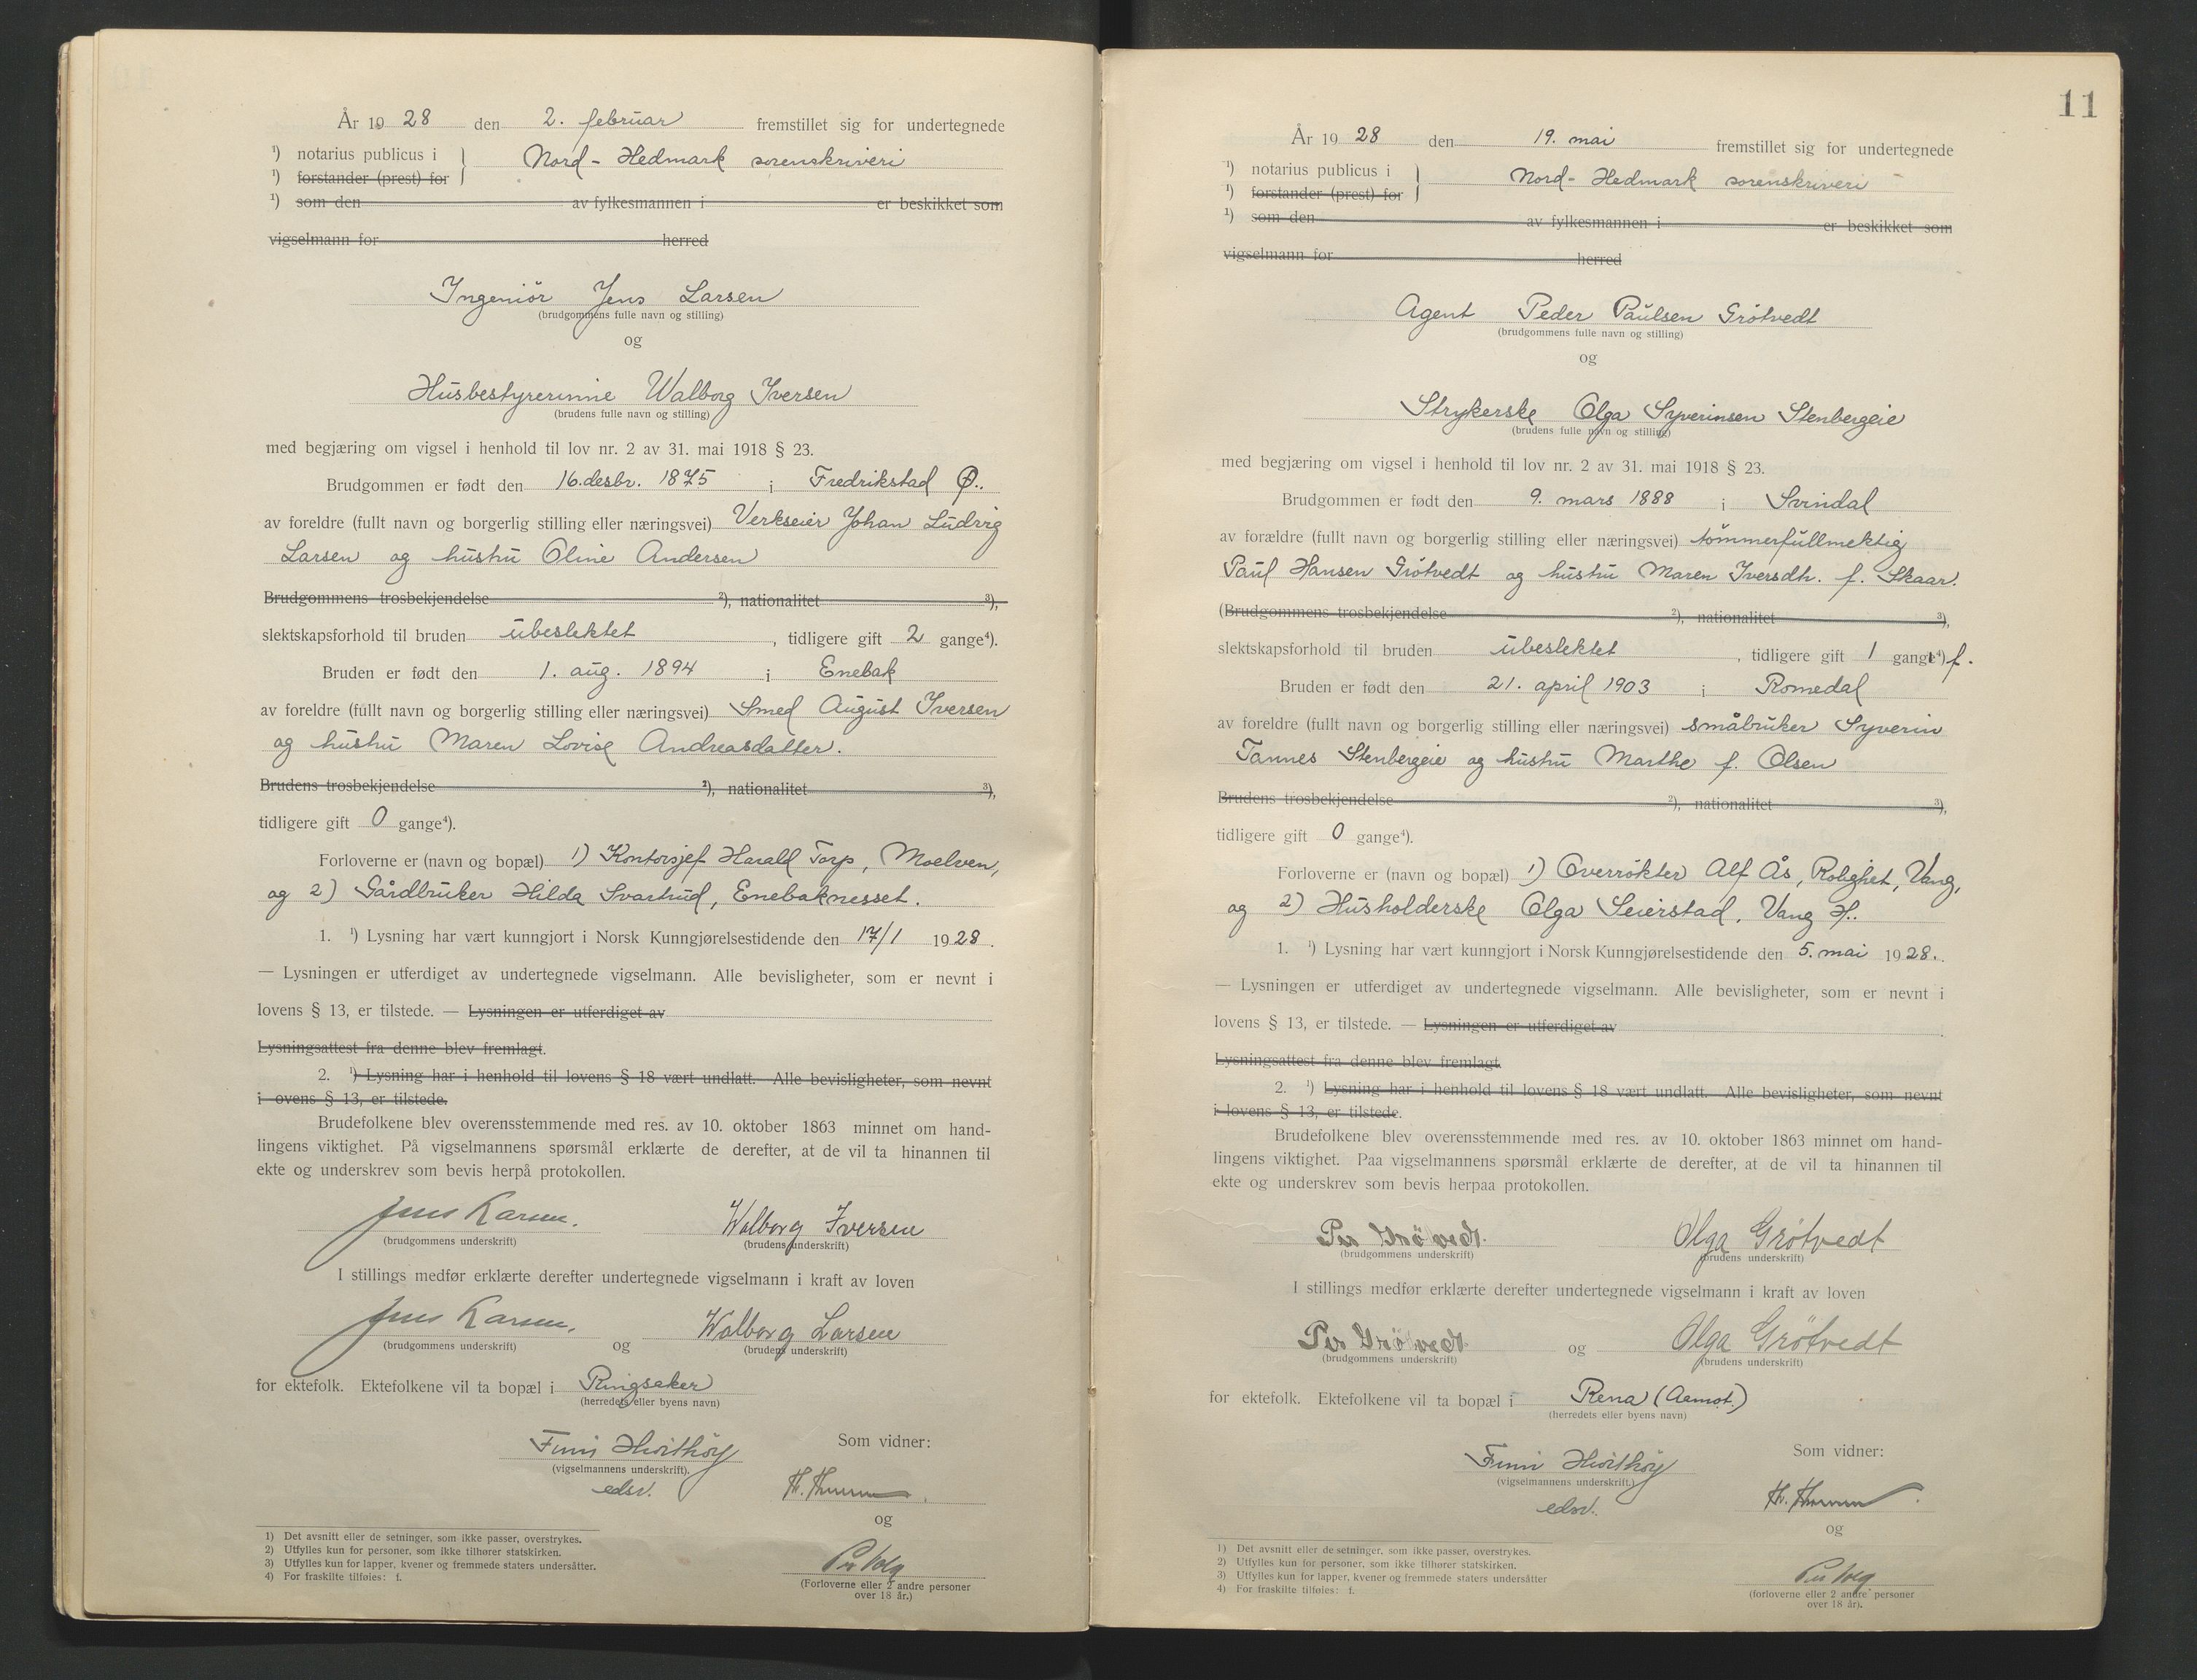 År 19 28 den 2. februar fremstillet sig for undertegnede
¹) notarius publicus i } Nord - Hedmark sorenskriveri
¹) forstander (prest) for
¹) som den av fylkesmannen i er beskikket som
vigselmann for herred
Ingeniör Jens Larsen
(brudgommens fulle navn og stilling)
og
Husbestyrerinne Walborg Iversen
(brudens fulle navn og stilling)
med begjæring om vigsel i henhold til lov nr. 2 av 31. mai 1918 § 23.
Brudgommen er født den 16. desbr. 1875 i Fredrikstad Ø..
av foreldre (fullt navn og borgerlig stilling eller næringsvei) Verkseier Johan Ludvig
Larsen og hustru Oline Andersen
Brudgommens trosbekjendelse ²), nationalitet ³),
slektskapsforhold til bruden ubeslektet , tidligere gift 2 gange⁴).
Bruden er født den 1. aug. 1894 i Enebak
av foreldre (fullt navn og borgerlig stilling eller næringsvei) Smed August Iversen
og hustru Maren Lovise Andreasdatter.
Brudens trosbekjendelse ²), nationalitet ³),
tidligere gift 0 gange⁴).
Forloverne er (navn og bopæl) 1) Kontorsjef Harald Torp, Moelven,
og 2) Gårdbruker Hilda Svartrud, Enebaknesset.
1. ¹) Lysning har vært kunngjort i Norsk Kunngjørelsestidende den 17/1 1928.
— Lysningen er utferdiget av undertegnede vigselmann. Alle bevisligheter, som er nevnt i
lovens § 13, er tilstede. — Lysningen er utferdiget av
Lysningsattest fra denne blev fremlagt.
2. ¹) Lysning har i henhold til lovens § 18 vært undlatt. Alle bevisligheter, som nevnt
i ovens § 13, er tilstede.
Brudefolkene blev overensstemmende med res. av 10. oktober 1863 minnet om hand-
lingens viktighet. På vigselmannens spørsmål erklærte de derefter, at de vil ta hinannen til
ekte og underskrev som bevis herpå protokollen.
Jens Larsen. Walborg Iversen
(brudgommens underskrift) (brudens underskrift)
I stillings medfør erklærte derefter undertegnede vigselmann i kraft av loven
Jens Larsen. og Walborg Larsen
(brudgommens underskrift) (brudens underskrift)
for ektefolk. Ektefolkene vil ta bopæl i Ringsaker
(herredets eller byens navn)
Finn Hvithöy Som vidner:
(vigselmannens underskrift).
edsv.
og
(Forloverne eller 2 andre personer
over 18 år.)
1) Det avsnitt eller de setninger, som ikke passer, overstrykes.
2) Utfylles kun for personer, som ikke tilhører statskirken.
3) Utfylles kun for lapper, kvener og fremmede staters undersåtter.
4) For fraskilte tilføies: f.
11
År 19 28 den 19. mai fremstillet sig for undertegnede
¹) notarius publicus i } Nord - Hedmark sorenskriveri
¹) forstander (prest) for
¹) som den av fylkesmannen i er beskikket som
vigselmann for herred
Agent Peder Paulsen Grötvedt
(brudgommens fulle navn og stilling)
og
Strykerske Olga Syverinsen Stenbergeie
(brudens fulle navn og stilling)
med begjæring om vigsel i henhold til lov nr. 2 av 31. mai 1918 § 23.
Brudgommen er født den 9. mars 1888 i Svindal
av forældre (fullt navn og borgerlig stilling eller næringsvei) tömmerfullmektig
Paul Hansen Grötvedt og hustru Maren Iversdtr. f. Skaar.
(Brudgommens trosbekjendelse ²), nationalitet ³),
slektskapsforhold til bruden ubeslektet , tidligere gift 1 gang⁴) f.
Bruden er født den 21. april 1903 i Romedal
av foreldre (fullt navn og borgerlig stilling eller næringsvei) småbruker Syverin
Tannes Stenbergeie og hustru Marthe f. Olsen
Brudens trosbekjendelse ²), nationalitet ³),
tidligere gift 0 gange⁴).
Forloverne er (navn og bopæl) 1) Overrökter Alf Ås, Rolighet, Vang,
og 2) Husholderske Olga Seierstad, Vang H..
1. ¹) Lysning har vært kunngjort i Norsk Kunngjørelsestidende den 5. mai 1928.
— Lysningen er utferdiget av undertegnede vigselmann. Alle bevisligheter, som er nevnt i
lovens § 13, er tilstede. — Lysningen er utferdiget av
Lysningsattest fra denne blev fremlagt
2. ¹) Lysning har i henhold til lovens § 18 vært undlatt. Alle bevisligheter, som nevnt
i lovens § 13, er tilstede.
Brudefolkene blev overensstemmende med res. av 10. oktober 1863 minnet om hand-
lingens viktighet. Paa vigselmannens spørsmål erklærte de derefter, at de vil ta hinannen til
ekte og underskrev som bevis herpaa protokollen.
Per Grötvedt. Olga Grötvedt
(brudgommens underskrift) (brudens underskrift)
I stillings medfør erklærte derefter undertegnede vigselmann i kraft av loven
Per Grötvedt. og Olga Grötvedt
(brudgommens underskrift) (brudens underskrift)
for ektefolk. Ektefolkene vil ta bopæl i Rena (Aamot.)
(herredets eller byens navn)
Finn Hvithöy Som vidner:
(vigselmannens underskrift.)
edsv.
og
(forloverne eller 2 andre personer
over 18 år).
1) Det avsnitt eller de setninger, som ikke passer, overstrykes.
2) Utfylles kun for personer, som ikke tilhører statskirken.
3) Utfylles kun for lapper, kvener og fremmede staters undersåtter
4) For fraskilte tilføies: f.